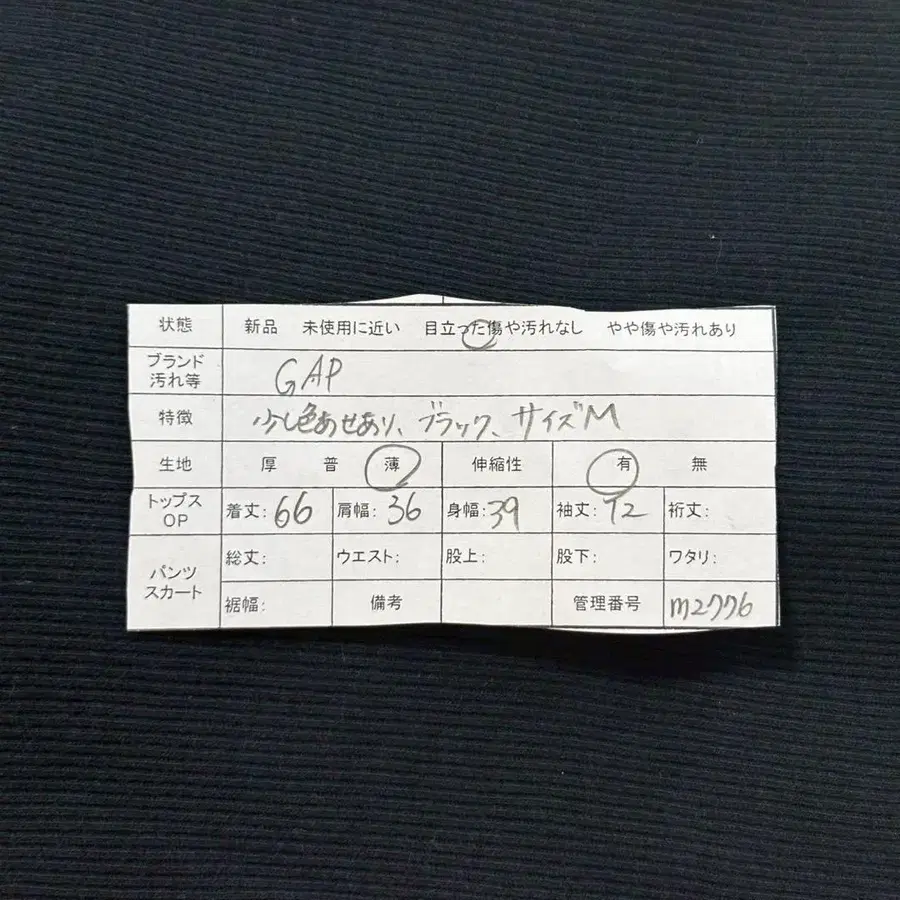 状態 新品 未使用に近い 目立った傷や汚れなし やや傷や汚れあり
ブランド
汚れ等 GAP
特徴 少し色あせあり、ブラック、サイズM
生地 厚 普 薄 伸縮性 有 無
トップス
OP 着丈:66 肩幅:36 身幅:39 袖丈:12 裄丈:
パンツ
スカート 総丈: ウエスト: 股上: 股下: ワタリ:
裾幅: 備考 管理番号 m2776